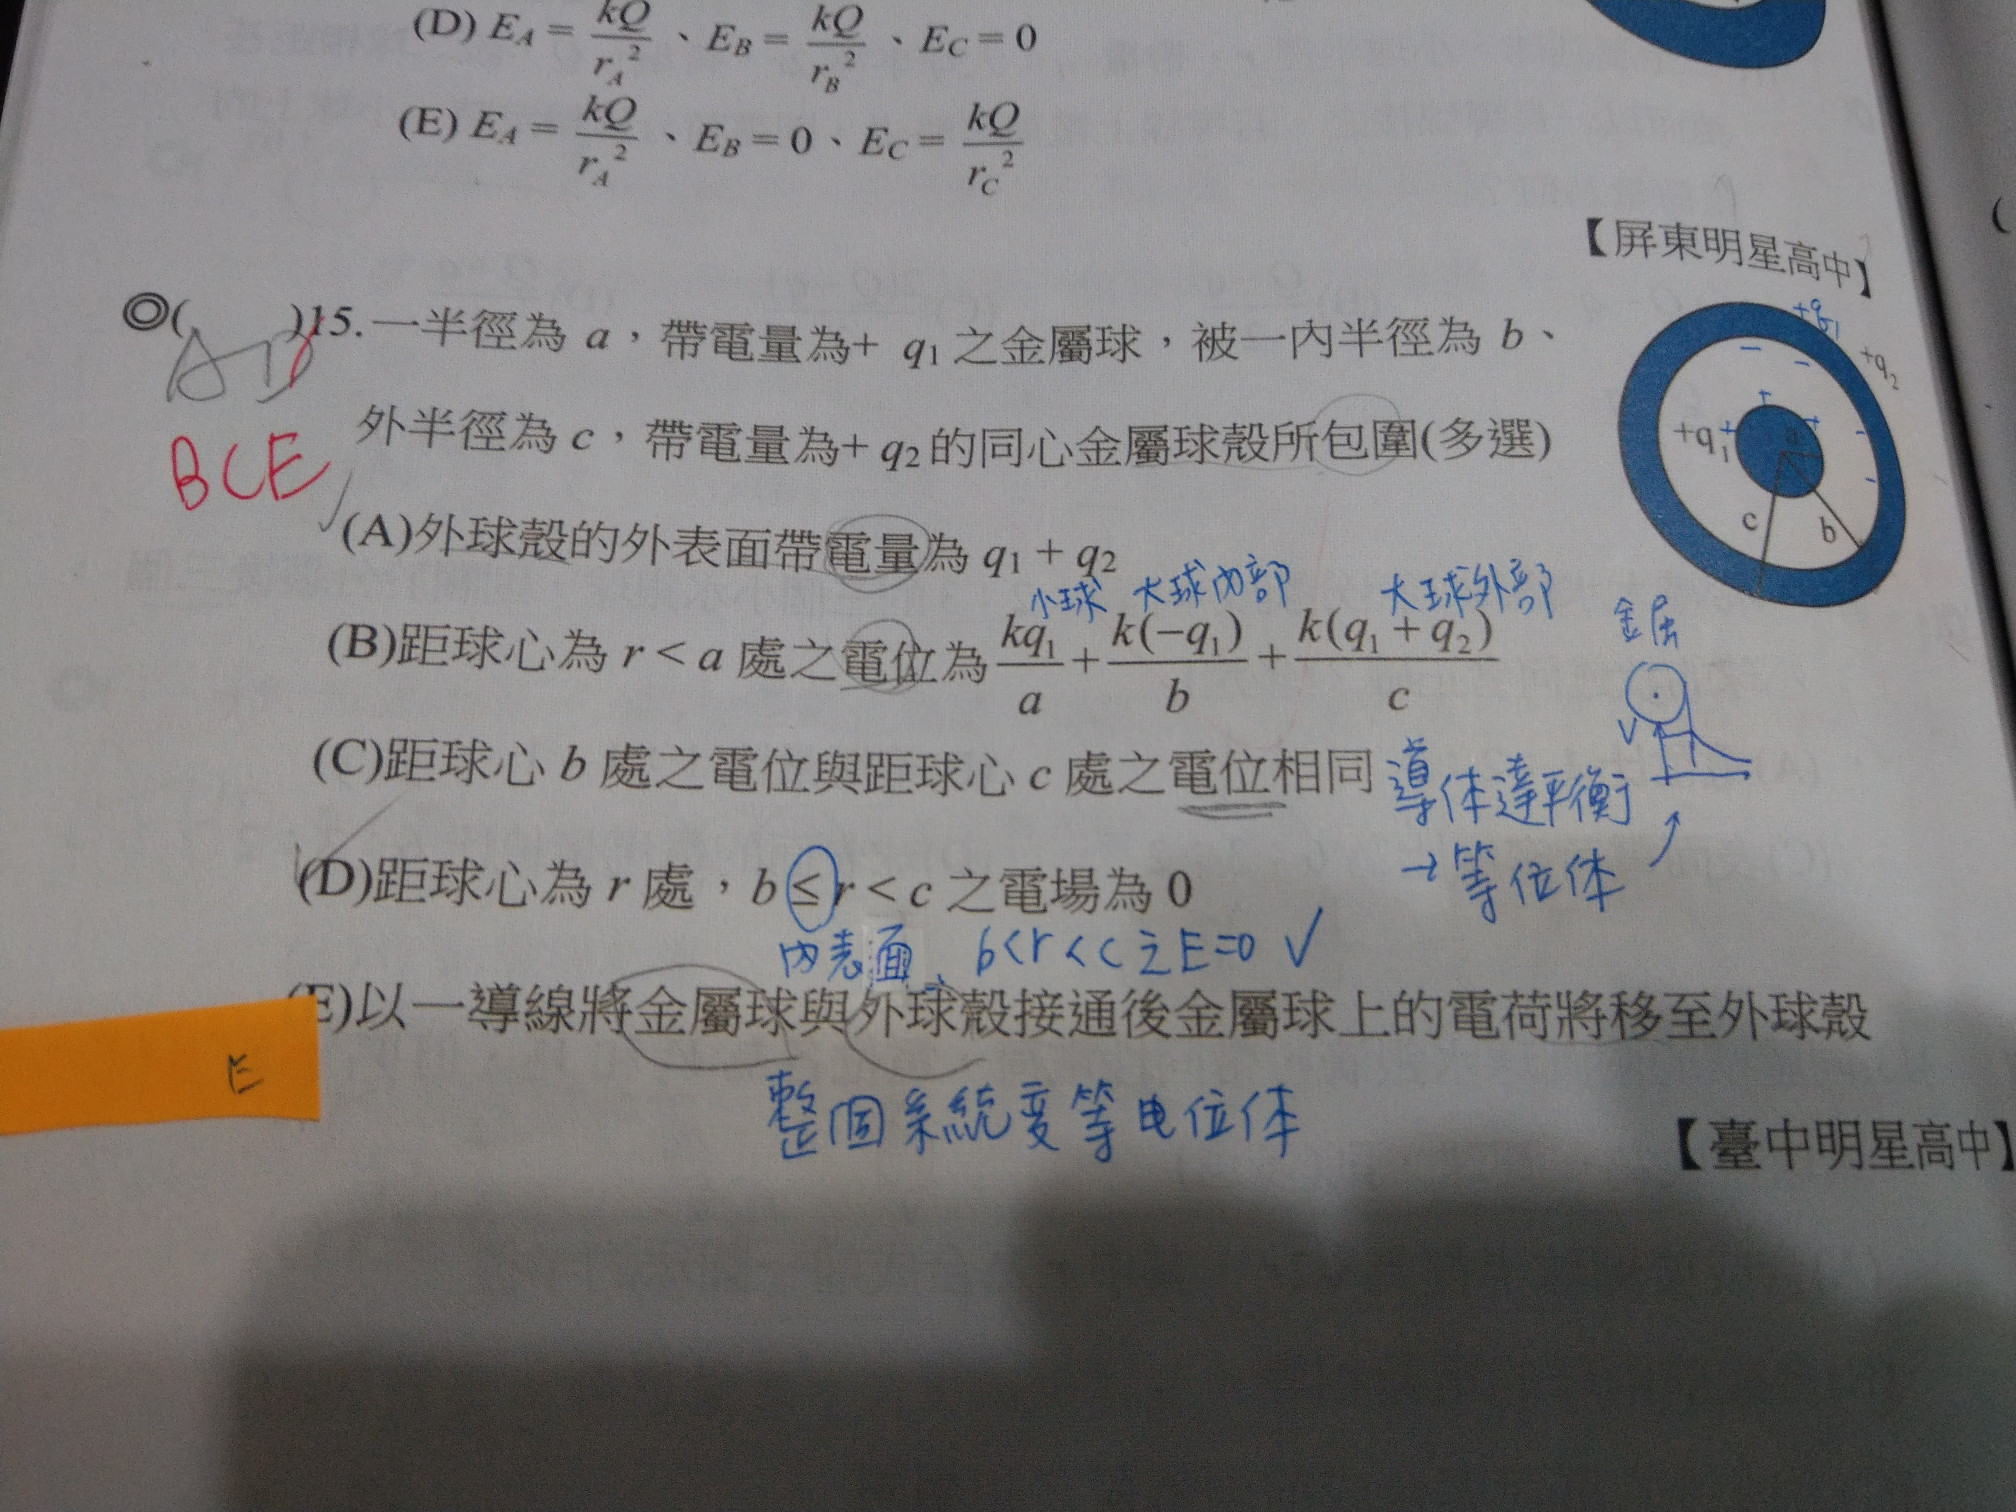 (D) E_A = kQ/r_A² 、E_B = kQ/r_B² 、E_C = 0
(E) E_A = kQ/r_A² 、E_B = 0、E_C = kQ/r_C²
【屏東明星高中】
◎( )15.一半徑為 a，帶電量為+ q₁ 之金屬球，被一內半徑為 b、
AD
BCE
外半徑為 c，帶電量為+ q₂ 的同心金屬球殼所包圍(多選)
+q₁
+q₂
+q₁
a
c
b
(A)外球殼的外表面帶電量為 q₁ + q₂
小球 大球內部 大球外部
(B)距球心為 r < a 處之電位為 kq₁/a + k(−q₁)/b + k(q₁ + q₂)/c
金属
V
(C)距球心 b 處之電位與距球心 c 處之電位相同
導体達平衡
→等位体
(D)距球心為 r 處，b ≤ r < c 之電場為 0
內表面、b<r<c之E=0 ✓
(E)以一導線將金屬球與外球殼接通後金屬球上的電荷將移至外球殼
E
整個系統變等电位体
【臺中明星高中】